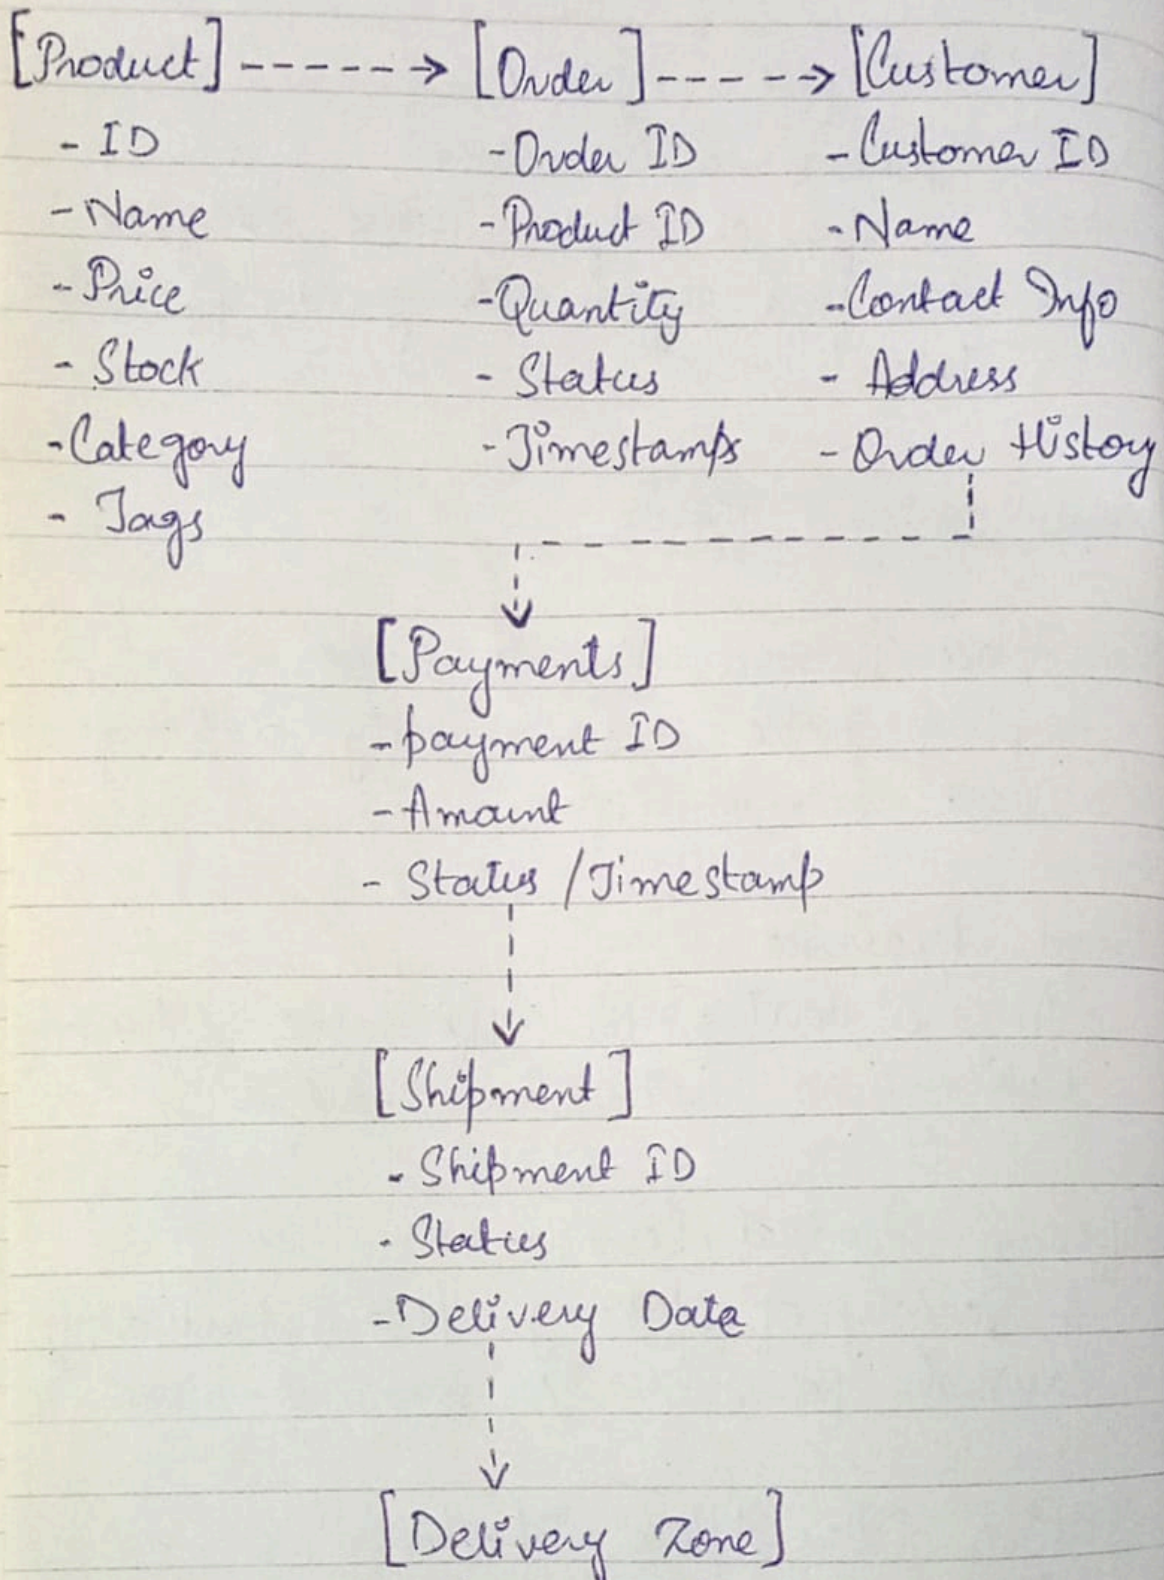 [Product] ------> [Order] -----> [Customer]
- ID
- Name
- Price
- Stock
- Category
- Tags
- Order ID
- Product ID
- Quantity
- Status
- Timestamps
- Customer ID
- Name
- Contact Info
- Address
- Order History
[Payments]
- payment ID
- Amount
- Status / Timestamp
[Shipment]
- Shipment ID
- Status
- Delivery Data
[Delivery Zone]